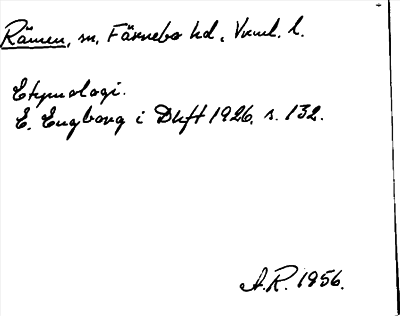 Rämen, sn, Färnebo hd, Vrml. l.
Etymologi.
E. Engborg i Dluft 1926, s. 132.
A.R. 1956.